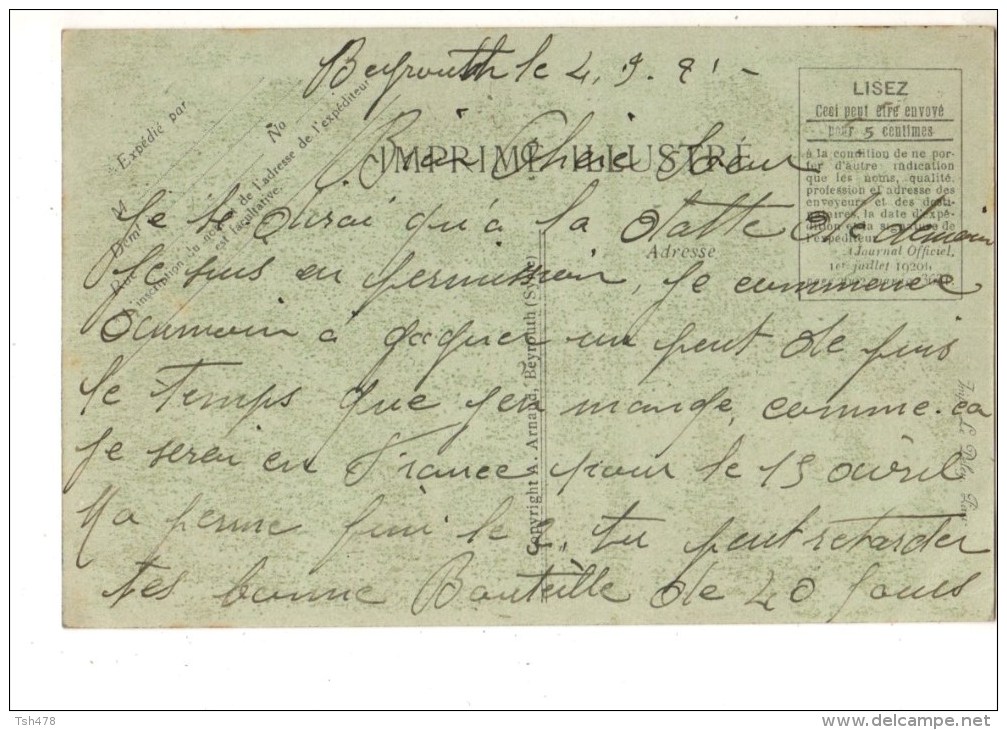 Beyrouth le 4. 9. 21 -
Bien Chere Soeur
Je te dirai qu'a la datte de demain
Je suis en permission, je commence
oumoin a gagner un peut de puis
le temps que j'en mange, comme ca
je serai en France pour le 15 avril
Ma perme fini le 2, tu peut retarder
tes bonne Bouteille de 40 jours
IMPRIMÉ ILLUSTRÉ
Adresse
Expédié par
M
Dem
No
l'inscription du nom et de l'adresse de l'expéditeur
est facultative.
LISEZ
Ceci peut être envoyé
pour 5 centimes
à la condition de ne por-
ter d'autre indication
que les noms, qualité,
profession et adresse des
envoyeurs et des desti-
nataires, la date d'expé-
dition et la signature de
l'expéditeur
Journal Officiel,
1er juillet 1920
Copyright A. Arnaud, Beyrouth (Syrie)
Tsh478
www.delcampe.net